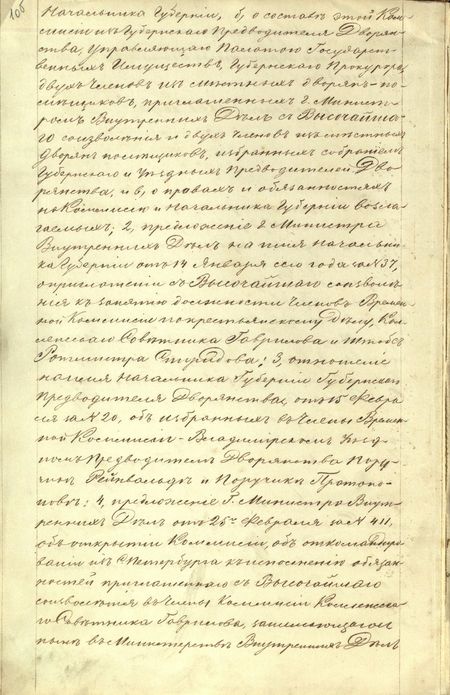 106
Начальника Губерніи, б, о составѣ этой Ком-
мисіи изъ Губернскаго Предводителя Дворян-
ства, Управляющаго Палатою Государст-
венныхъ Имуществъ, Губернскаго Прокурора,
двухъ Членовъ изъ мѣстныхъ дворянъ-по-
мѣщиковъ, приглашенныхъ Г. Министр-
омъ Внутреннихъ Дѣлъ съ Высочайша-
го соизволенія и двухъ Членовъ изъ мѣстныхъ
дворянъ помѣщиковъ, избранныхъ собраніемъ
Губернскаго и Уѣздныхъ Предводителей Дво-
рянства, и в, о правахъ и обязанностяхъ
на Коммисію и Начальника Губерніи возла-
гаемыхъ; 2, предложеніе Г. Министра
Внутреннихъ Дѣлъ на имя Начальни-
ка Губерніи отъ 14 Января сего года за № 37,
о приглашеніи съ Высочайшаго соизволе-
нія къ занятію должности Членовъ Времен-
ной Коммисіи по крестьянскому дѣлу, Кол-
лежскаго Совѣтника Гаврилова и Штабсъ
Ротмистра Спиридова; 3, отношеніе
на имя Начальника Губерніи Губернскаго
Предводителя Дворянства, отъ 15 Февра-
ля за № 20, объ избранныхъ въ Члены Времен-
ной Коммисіи - Владимірскомъ Уѣзд-
номъ Предводителѣ Дворянства Пору-
чикѣ Рейнвальдѣ и Поручикѣ Протопо-
повѣ; 4, предложеніе Г. Министра Внут-
реннихъ Дѣлъ отъ 25го Февраля за № 411,
объ открытіи Коммисіи, объ откомандиро-
ваніи изъ С.Петербурга къ исполненію обязан-
ностей приглашеннаго съ Высочайшаго
соизволенія въ Члены Коммисіи Коллежска-
го Совѣтника Гаврилова, занимающагося
нынѣ въ Министерствѣ Внутреннихъ Дѣлъ